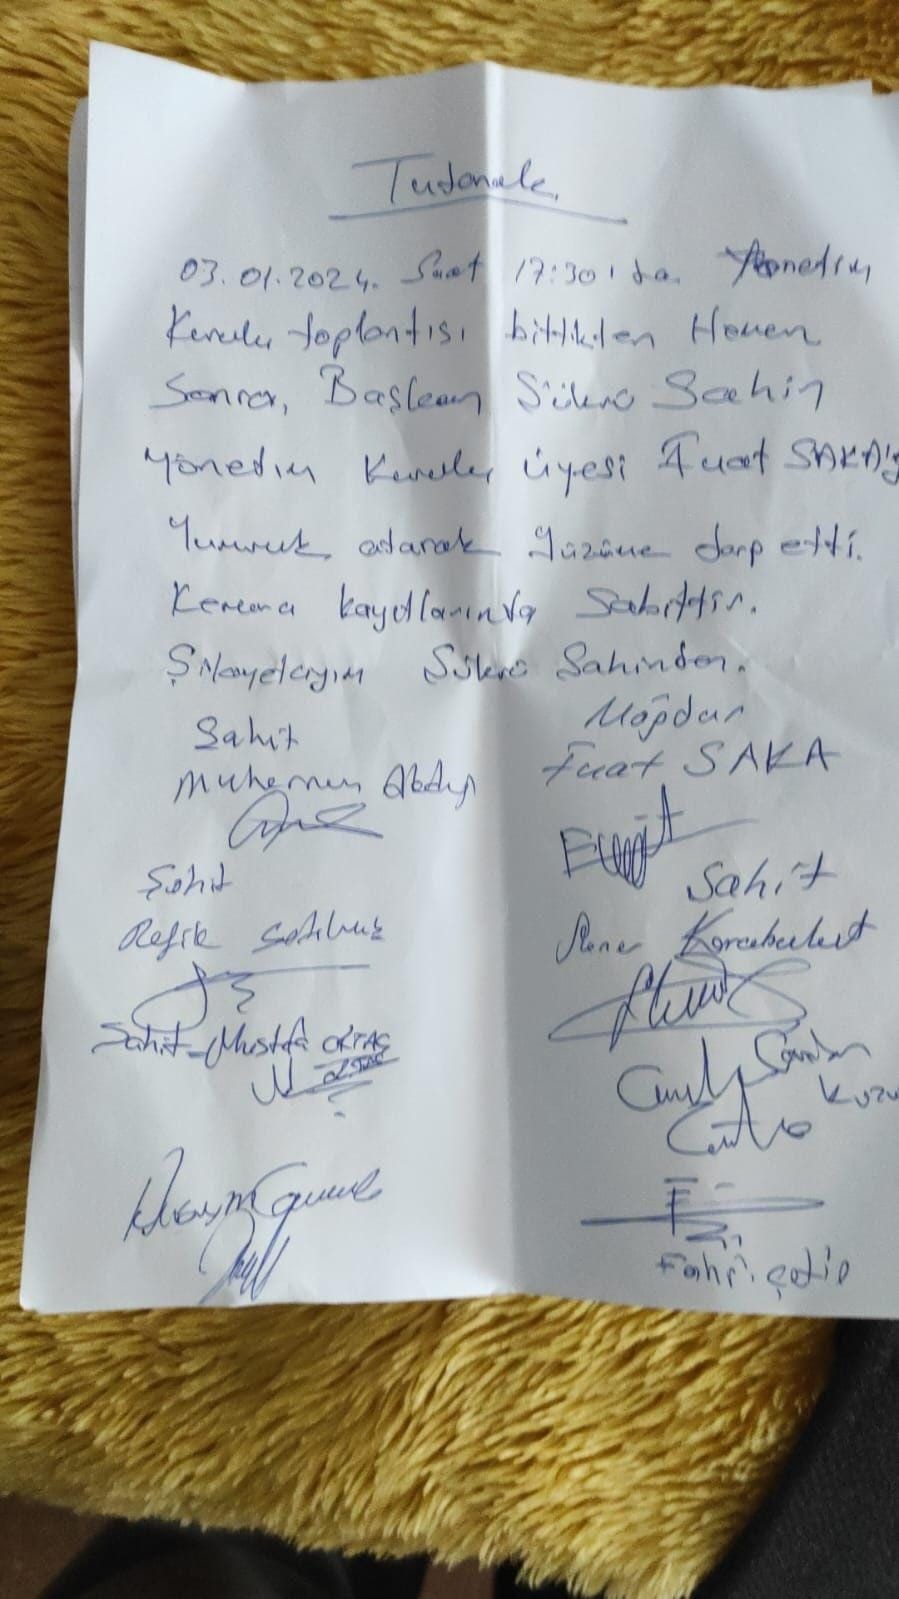 Tutanak
03.01.2024. Saat 17:30'da. Yönetim
Kurulu toplantısı bittikten Hemen
Sonra, Başkan Şükrü Şahin
Yönetim Kurulu üyesi Fuat SAKA'y
Yumruk atarak Yüzüne darp etti.
Kemera kayıtlarında Sabittir.
Şikayetçiyim Şükrü Şahinden.
Mağdur
Şahit
Fuat SAKA
Muhammen
Şahit
Sahit
Refik
Karabulut
Sahit - Mustafa OKTAŞ
Kuzu
Fahri çetin